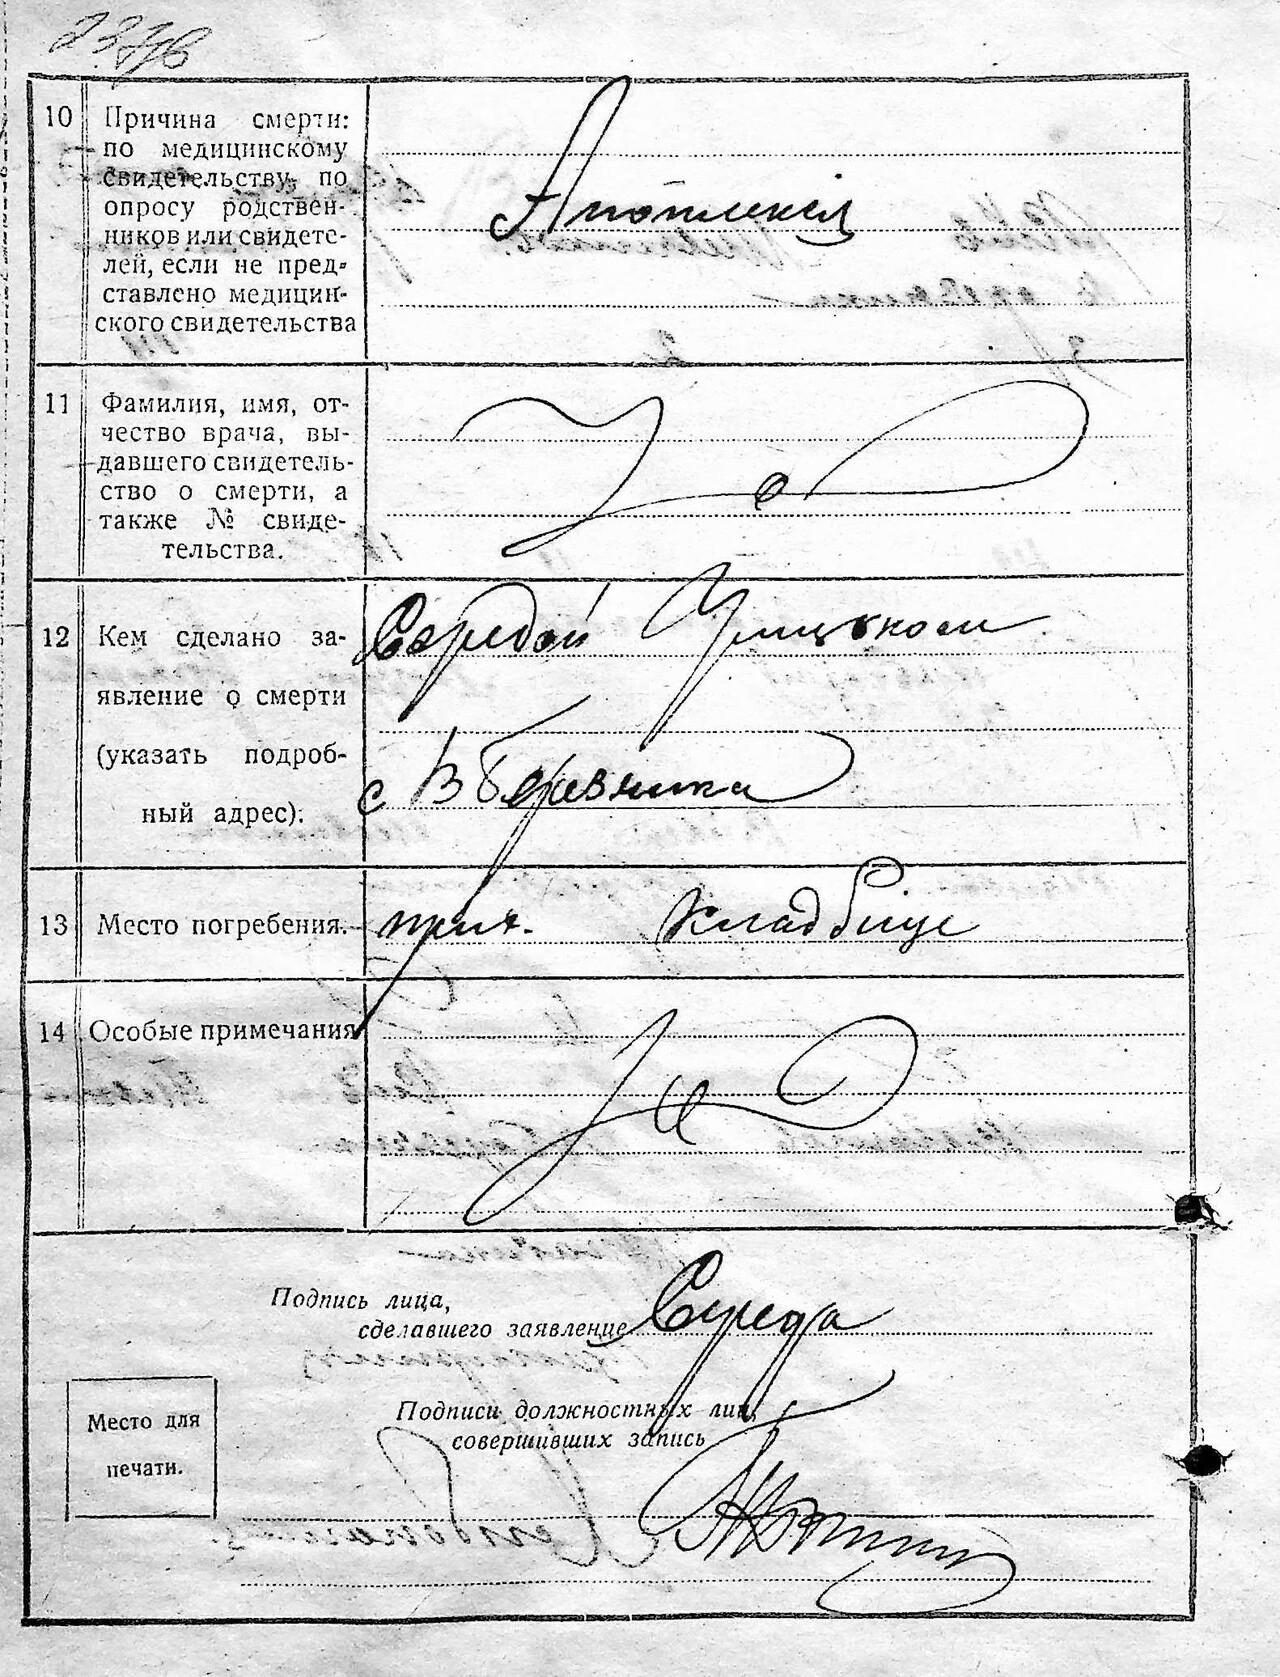 10 Причина смерти:
по медицинскому
свидетельству, по
опросу родствен-
ников или свидете-
лей, если не пред-
ставлено медицин-
ского свидетельства
Апоплексия
11 Фамилия, имя, от-
чество врача, вы-
давшего свидетель-
ство о смерти, а
также № свиде-
тельства.
12 Кем сделано за-
явление о смерти
(указать подроб-
ный адрес).
Середой
с В Березянка
13 Место погребения.
кладбище
14 Особые примечания
Подпись лица,
сделавшего заявление Середа
Подписи должностных лиц,
совершивших запись
Место для
печати.